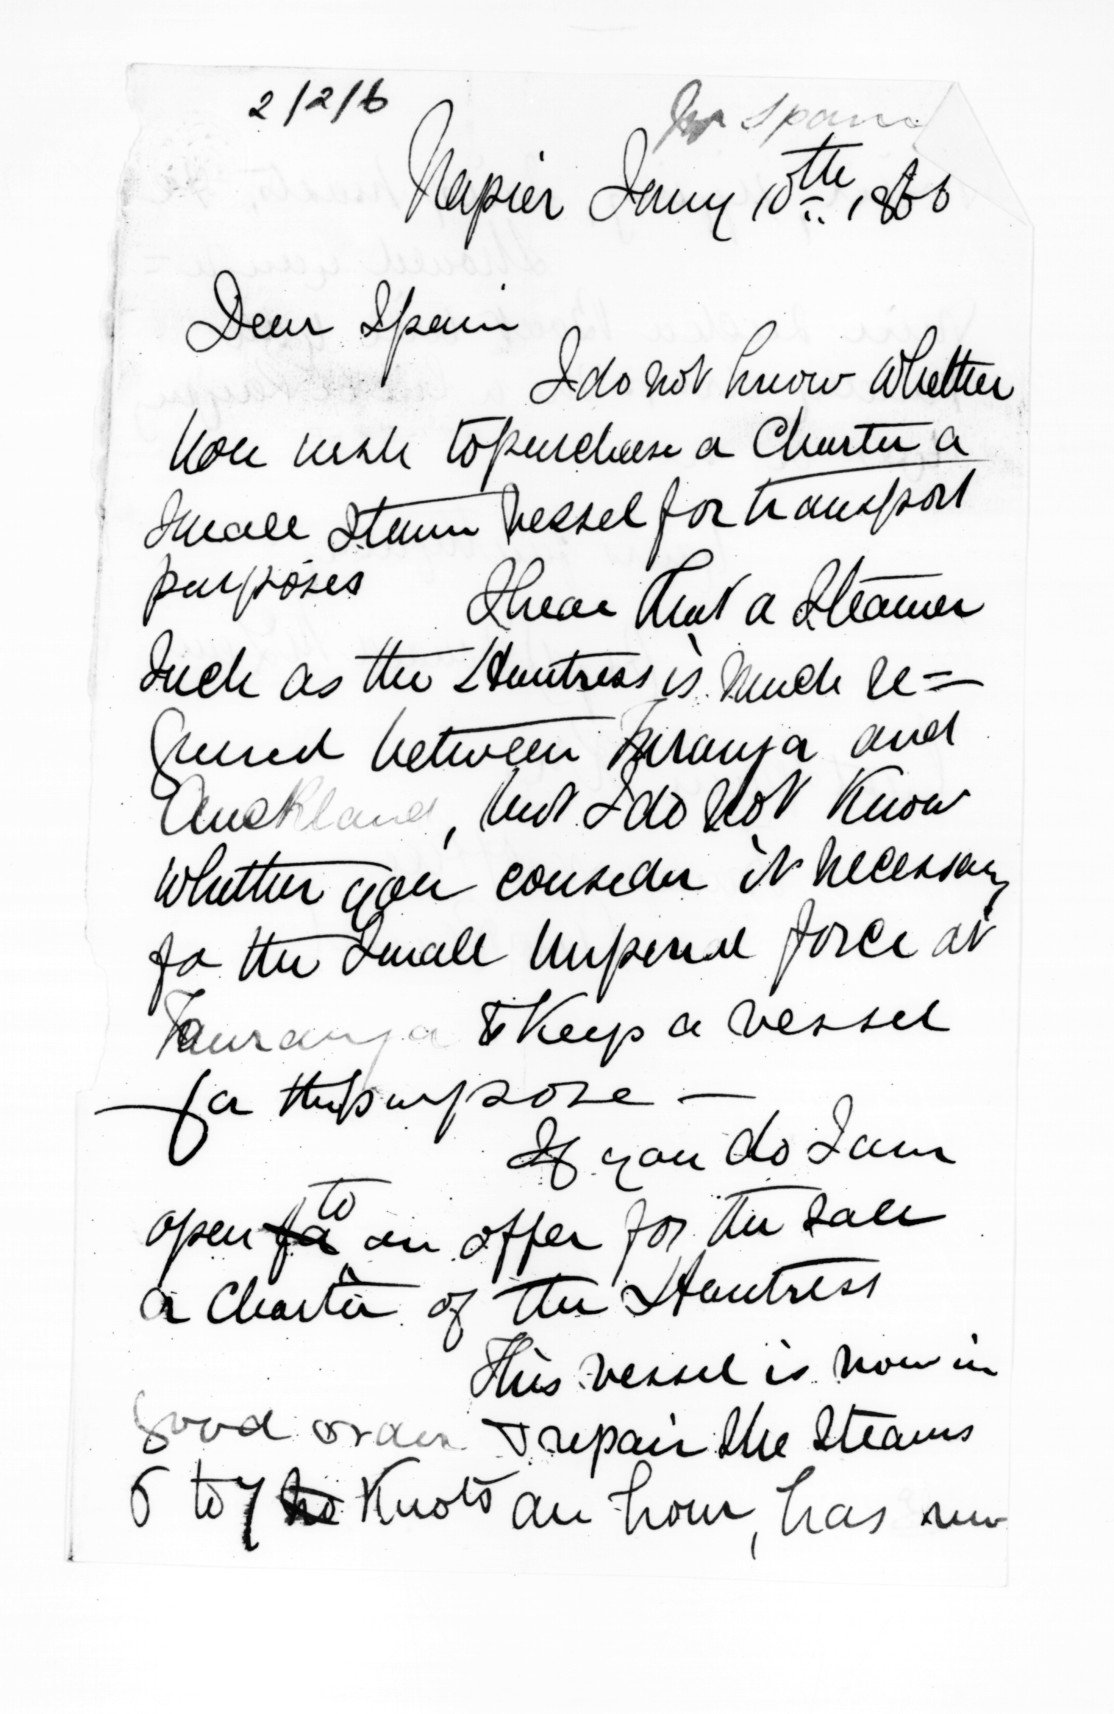 2/2/6
Napier Jany 10th 1866
Dear Spain
I do not know whether
you wish to purchase or Charter a
small steam vessel for transport
purposes I hear that a Steamer
such as the Huntress is much re=
quired between Turanga and
Auckland, but I do not know
whether you consider it necessary
for the small Imperial force at
Tauranga to Keep a vessel
for this purpose —
If you do I am
open to an offer for the sale
or Charter of the Huntress
This vessel is now in
good order & repair She Steams
6 to 7 Knots an hour, has new